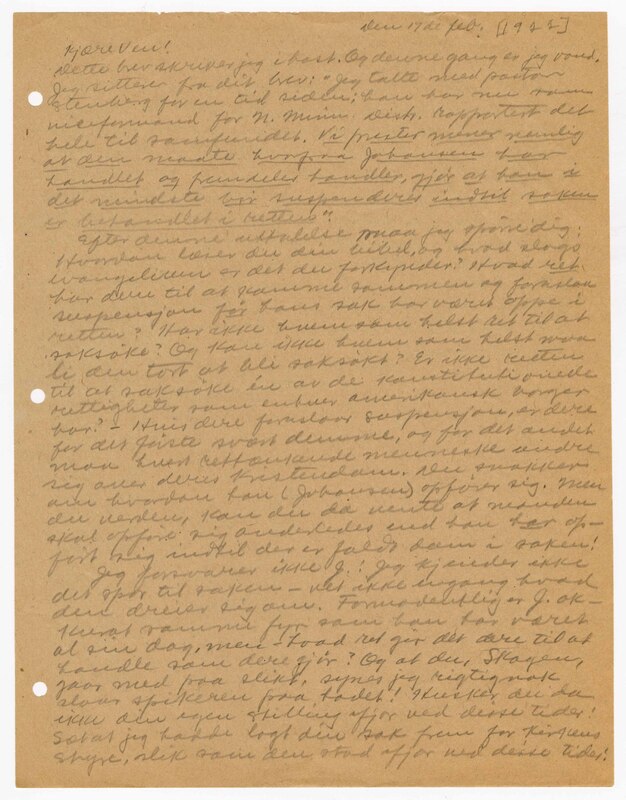 den 17de feb. [1922]
Kjære Ven!
Dette brev skriver jeg i hast. Og denne gang er jeg vond.
Jeg sitterer fra dit brev: "Jeg talte med pastor
Stenberg for en tid siden; han har nu som
viceformand for N. Minn. Distr. rapportert det
hele til samfundet. Vi prester mener nemlig
at den maate hvorpaa Johansen har
handlet og fremdeles handler, gjør at han i
det mindste bør suspenderes indtil saken
er behandlet i retten".
Efter denne uttalelse maa jeg spørre dig:
Hvordan læser du din bibel, og hvad slags
evangelium er det du forkynder? Hvad ret
har dere til at komme sammen og foreslaa
suspensjon før hans sak har været oppe i
retten? Har ikke hvem som helst ret til at
saksøke? Og kan ikke hvem som helst maa
li den tort at bli saksøkt? Er ikke retten
til at saksøke én av de konstitutionede
rettigheter som enhver amerikansk borger
har? – Hvis dere foreslaar suspensjon, er dere
for det første svært dumme, og for det andet
maa hvert rettænkende menneske undre
sig over deres kristendom. Du snakker
om hvordan han (Johansen) opfører sig. Men
du verden, kan du da vente at manden
skal opføre sig anderledes end han har op-
ført sig indtil der er faldt dom i saken!
Jeg forsvarer ikke J.! Jeg kjender ikke
det spor til saken – vet ikke engang hvad
den dreier sig om. Formodentlig er J. ak-
kurat samme fyr som han har været
al sin dag, men – hvad ret gir det dere til at
handle som dere gjør? Og at du, Skogen,
gaar med paa slikt, synes jeg rigtignok
slaar spikeren paa hodet! Husker du da
ikke din egen stilling ifjor ved disse tider!
Sæt at jeg hadde lagt din sak frem for kirkens
styre, slik som den stod ifjor ved disse tider!